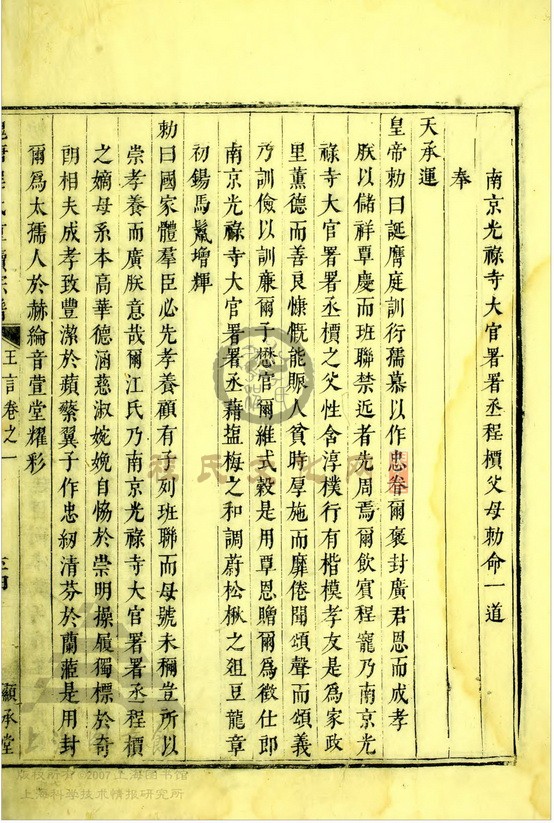 南京光祿寺大官署署丞程檟父母勅命一道
奉
天承運
皇帝勅曰誕膺庭訓衍孺慕以作忠眷爾褒封廣君恩而成孝
朕以儲祥覃慶而班聯禁近者先周焉爾飲賓程寵乃南京光
祿寺大官署署丞檟之父性含淳樸行有楷模孝友是爲家政
里薰德而善良慷慨能賑人貧時厚施而靡倦聞頌聲而頌義
乃訓儉以訓廉爾子懋官爾維式穀是用覃恩贈爾爲徵仕郎
南京光祿寺大官署署丞藉塩梅之和調蔚松楸之俎豆龍章
初錫馬鬣增輝
勅曰國家體羣臣必先孝養顧有子列班聯而母號未稱豈所以
崇孝養而廣朕意哉爾江氏乃南京光祿寺大官署署丞程檟
之嫡母系本高華德涵慈淑婉娩自恊於崇明操履獨標於奇
朗相夫成孝孜豐潔於蘋蘩翼子作忠紉清芬於蘭茝是用封
爾爲太孺人於赫綸音萱堂耀彩
王言卷之一
顯承堂
程氏文化网
版权所有©2007上海图书馆
上海科学技术情报研究所